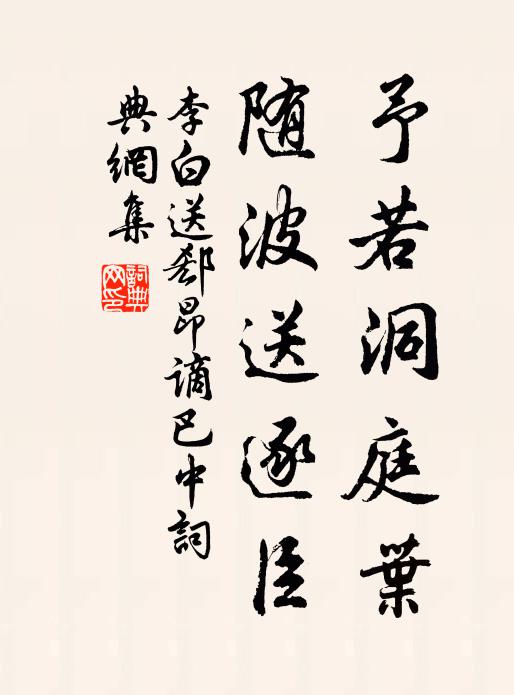 予若洞庭葉
随波送逐臣
李白送郄昂謫巴中詞
典網集
詞典网印